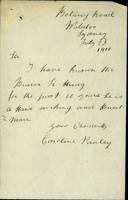 Botany Road
Waterloo
Sydney
July
Sir
I have known the
Bearer
for the past 10 years he is
a Hard working and Honest
Man
your Obedient
Caroline